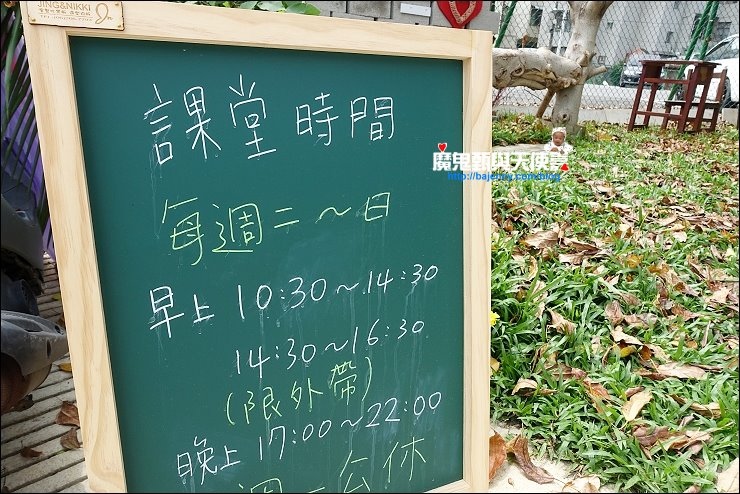 JING&NIKKI
課堂時間
每週二~日
早上 10:30~14:30
14:30~16:30
(限外帶)
晚上 17:00~22:00
週一公休
http://bajenny.com/blog